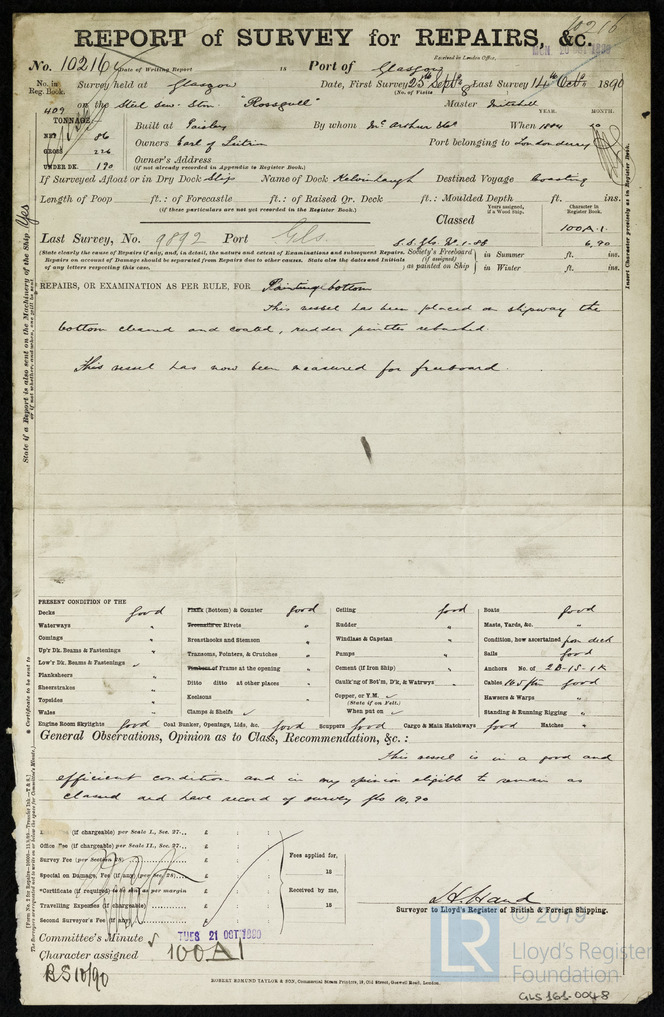 10216
REPORT of SURVEY for REPAIRS, &c.
Received in London Office,
No. 10216 Date of Writing Report 18 Port of Glasgow
No. in Reg. Book. Survey held at Glasgow Date, First Survey 25th Septr Last Survey 14th Octr 1890
(No. of Visits 8)
409 on the Steel Scw. Str. "Rossgull" Master Mitchell
TONNAGE YEAR. MONTH.
NET 86 Built at Paisley By whom McArthur &Co When 1884 10
GROSS 226 Owners Earl of Leitrim Port belonging to Londonderry
UNDER DK. 190 Owner's Address
(if not already recorded in Appendix to Register Book.)
If Surveyed Afloat or in Dry Dock Slip Name of Dock Kelvinhaugh Destined Voyage Coasting
Length of Poop ft.: of Forecastle ft.: of Raised Qr. Deck ft.: Moulded Depth ft. ins.
(if these particulars are not yet recorded in the Register Book.)
Years assigned, if a Wood Ship. Character in Register Book.
Classed 100A.1.
Last Survey, No. 9892 Port Gls.
S.S. Gls. No. 1-88 6,90
(State clearly the cause of Repairs if any, and, in detail, the nature and extent of Examinations and subsequent Repairs. Repairs on account of Damage should be separated from Repairs due to other causes. State also the dates and Initials of any letters respecting this case.
Society's Freeboard (if assigned) as painted on Ship
in Summer ft. ins.
in Winter ft. ins.
REPAIRS, OR EXAMINATION AS PER RULE, FOR Painting bottom
This vessel has been placed on slipway the
bottom cleaned and coated, rudder pintles rebushed.
This vessel has now been measured for freeboard.
State if a Report is also sent on the Machinery of the Ship Yes
or if not whether, and when, one will be sent
Insert Character precisely as in Register Book.
PRESENT CONDITION OF THE
Decks good
Waterways "
Comings "
Up'r Dk. Beams & Fastenings "
Low'r Dk. Beams & Fastenings ✓
Planksheers "
Sheerstrakes "
Topsides "
Wales "
Plank (Bottom) & Counter good
Treenails or Rivets "
Breasthooks and Stemson "
Transoms, Pointers, & Crutches "
Timbers or Frame at the opening "
Ditto ditto at other places "
Keelsons "
Clamps & Shelfs ✓
Ceiling good
Rudder "
Windlass & Capstan "
Pumps "
Cement (if Iron Ship) "
Caulk'ng of Bot'm, D'k, & Watrwys "
Copper, or Y.M. ✓
(State if on Felt.)
When put on ✓
Boats good
Masts, Yards, &c. "
Condition, how ascertained from deck
Sails good
Anchors No. of 2B-1S-1K
Cables 165 fms good
Hawsers & Warps "
Standing & Running Rigging "
Engine Room Skylights good Coal Bunker, Openings, Lids, &c. good Scuppers good Cargo & Main Hatchways good Hatches "
General Observations, Opinion as to Class, Recommendation, &c.:
This vessel is in a good and
efficient condition and in my opinion eligible to remain as
classed and have record of survey Gls 10,90
Certificate to be sent to
(if chargeable) per Scale I., Sec. 27... £ : :
Office Fee (if chargeable) per Scale II., Sec. 27... £ : :
Survey Fee (per Section 28) £ : :
Special on Damage, Fee (if any) (per Sec. 28) £ : :
*Certificate (if required) to be sent as per margin
Travelling Expenses (if chargeable) £ : :
Second Surveyor's Fee (if any) £ : :
Fees applied for,
18
Received by me,
18
H. Hand
Surveyor to Lloyd's Register of British & Foreign Shipping.
Committee's Minute TUES 21 OCT 1890
Character assigned 100A1
BS 10/90
ROBERT EDMUND TAYLOR & SON, Commercial Steam Printers, 19, Old Street, Goswell Road, London.
© 2019
LR
Lloyd's Register
Foundation
GLS 161-0048